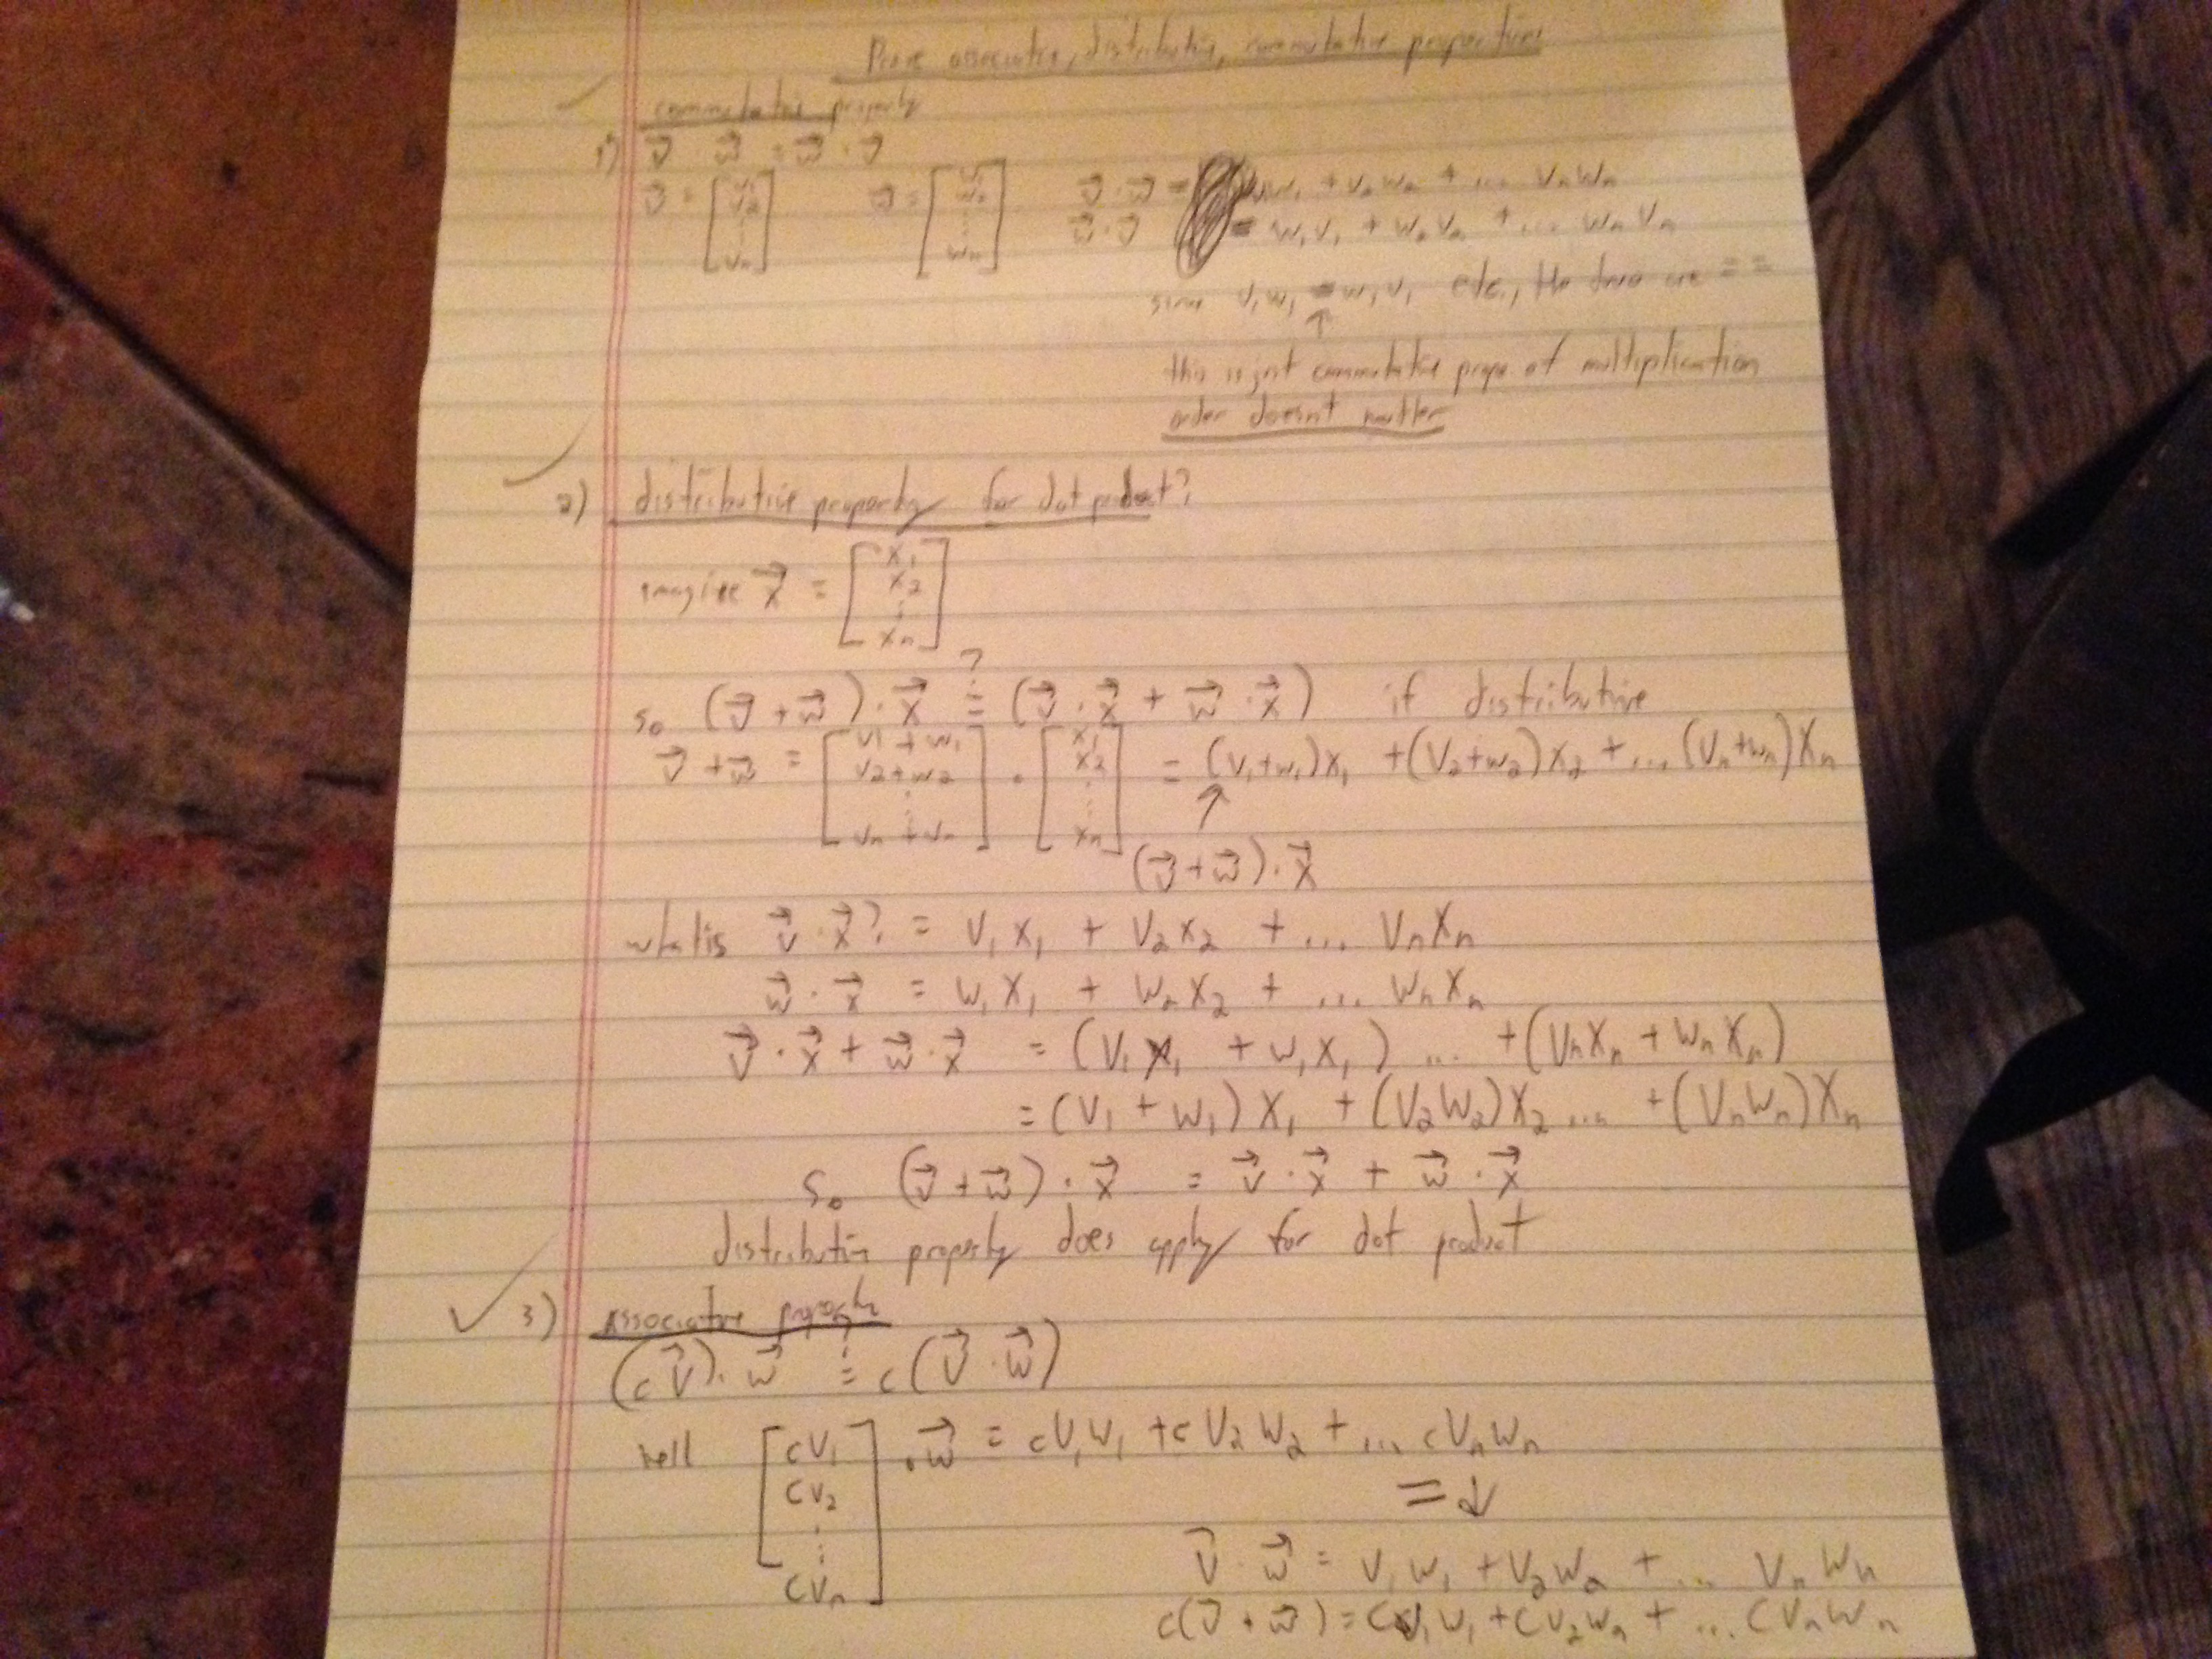 Prove associative, distributive, commutative properties
✓
1) commutative property
v⃗ · w⃗ = w⃗ · v⃗
v⃗ = [v₁ v₂ ⋮ vₙ] w⃗ = [w₁ w₂ ⋮ wₙ] v⃗ · w⃗ = v₁w₁ + v₂w₂ + ... vₙwₙ
w⃗ · v⃗ = w₁v₁ + w₂v₂ + ... wₙvₙ
since v₁w₁ = w₁v₁ etc, the above are ==
this is just commutative props of multiplication
order doesnt matter
✓ 2) distributive property for dot product?
imagine x⃗ = [x₁ x₂ ⋮ xₙ]
so (v⃗ + w⃗) · x⃗ =? (v⃗ · x⃗ + w⃗ · x⃗) if distributive
v⃗ + w⃗ = [v₁ + w₁ v₂ + w₂ ⋮ vₙ + wₙ] · [x₁ x₂ ⋮ xₙ] = (v₁+w₁)x₁ + (v₂+w₂)x₂ + ... (vₙ+wₙ)xₙ
↑
(v⃗ + w⃗) · x⃗
whatis v⃗ · x⃗? = v₁x₁ + v₂x₂ + ... vₙxₙ
w⃗ · x⃗ = w₁x₁ + w₂x₂ + ... wₙxₙ
v⃗ · x⃗ + w⃗ · x⃗ = (v₁x₁ + w₁x₁) ... + (vₙxₙ + wₙxₙ)
= (v₁ + w₁)x₁ + (v₂w₂)x₂ ... + (vₙwₙ)xₙ
so (v⃗ + w⃗) · x⃗ = v⃗ · x⃗ + w⃗ · x⃗
distributive property does apply for dot product
✓ 3) Associative property
(c v⃗) · w⃗ = c(v⃗ · w⃗)
well [cv₁ cv₂ ⋮ cvₙ] · w⃗ = cv₁w₁ + cv₂w₂ + ... cvₙwₙ
= ↓
v⃗ · w⃗ = v₁w₁ + v₂w₂ + ... vₙwₙ
c(v⃗ · w⃗) = cv₁w₁ + cv₂w₂ + ... cvₙwₙ